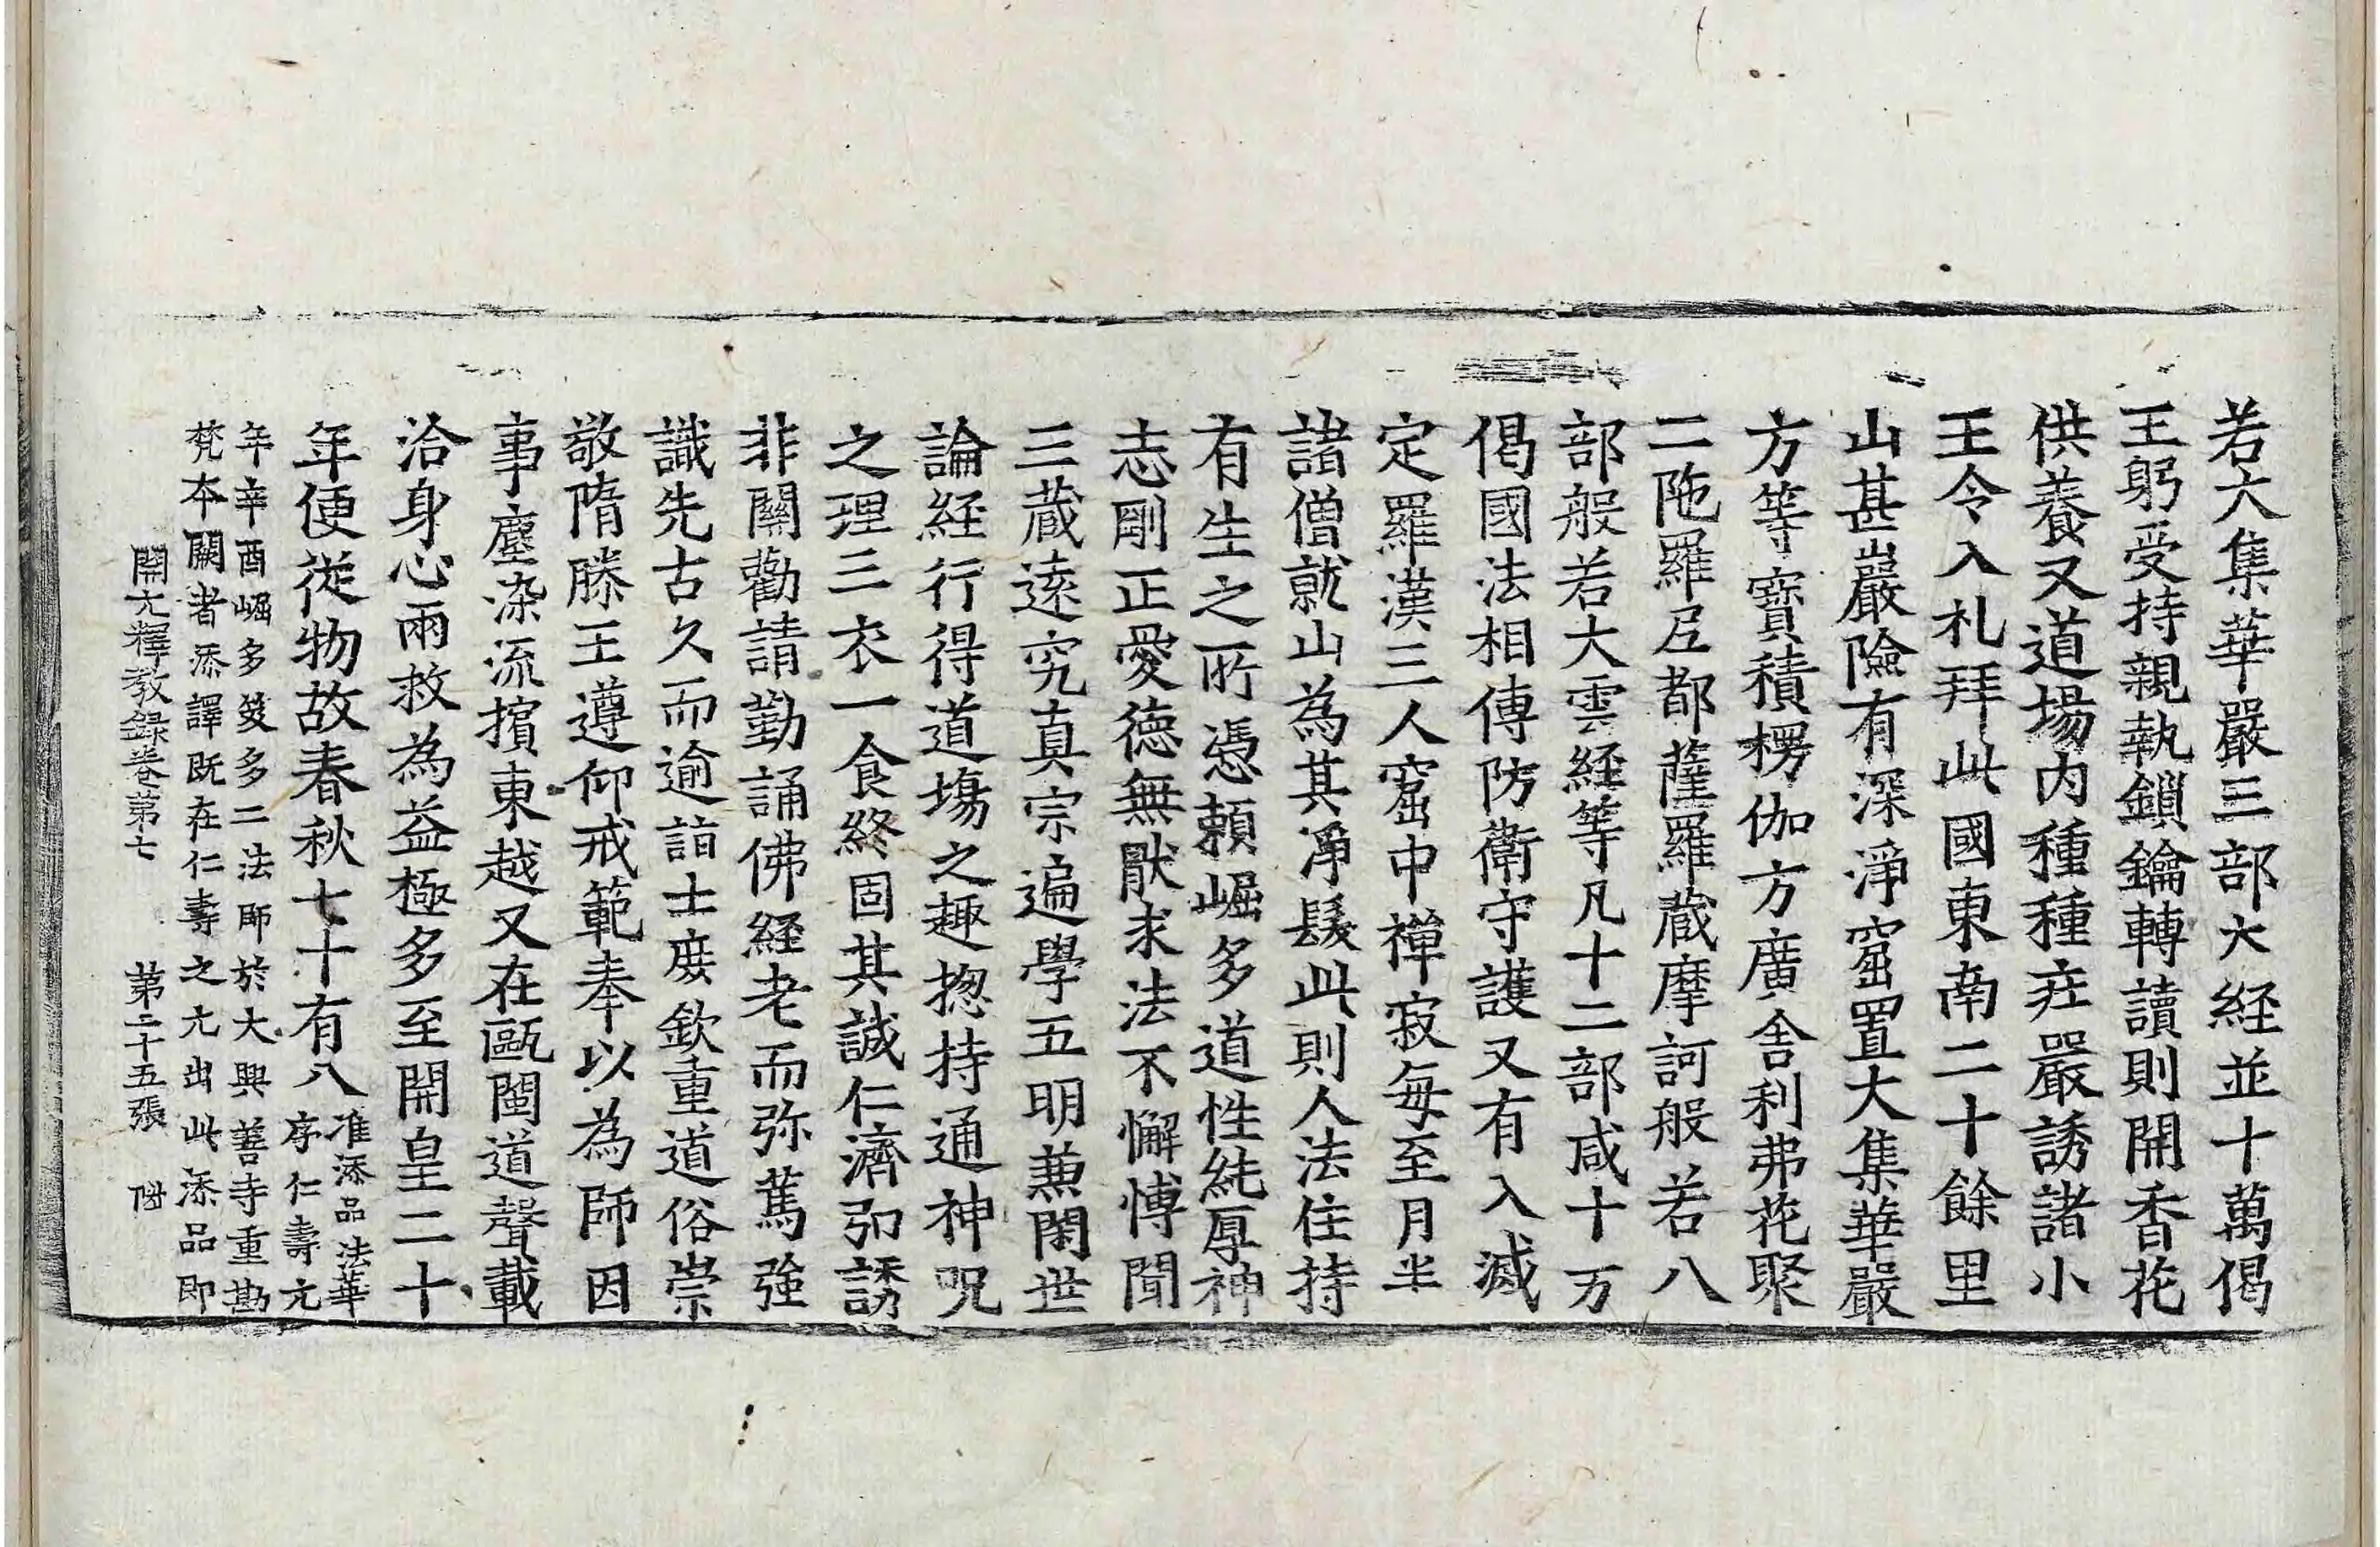 若大集華嚴三部大経並十萬偈
王躬受持親執鎖鑰轉讀則開香花
供養又道場內種種莊嚴誘諸小
王令入礼拜此國東南二十餘里
山甚巖險有深淨窟置大集華嚴
方等寶積楞伽方廣舍利弗花聚
二陁羅尼都薩羅蔵摩訶般若八
部般若大雲経等凡十二部咸十万
偈國法相傳防衛守護又有入滅
定羅漢三人窟中禅寂每至月半
諸僧就山為其淨髮此則人法住持
有生之所憑賴崛多道性純厚神
志剛正愛德無猒求法不懈博聞
三蔵逺究真宗遍學五明兼閑世
論経行得道場之趣揔持通神呪
之理三衣一食終固其誠仁濟弘誘
非關勸請勤誦佛経老而弥篤強
識先古久而逾諳士庻欽重道俗崇
敬隋滕王遵仰戒範奉以為師因
事塵染流擯東越又在甌閩道聲載
洽身心兩救為益極多至開皇二十
年便從物故春秋七十有八
准添品法華
序仁壽元
年辛酉崛多笈多二法師於大興善寺重勘
梵本闕者添譯既在仁壽之元出此添品即
開元釋教録卷第七 第二十五張